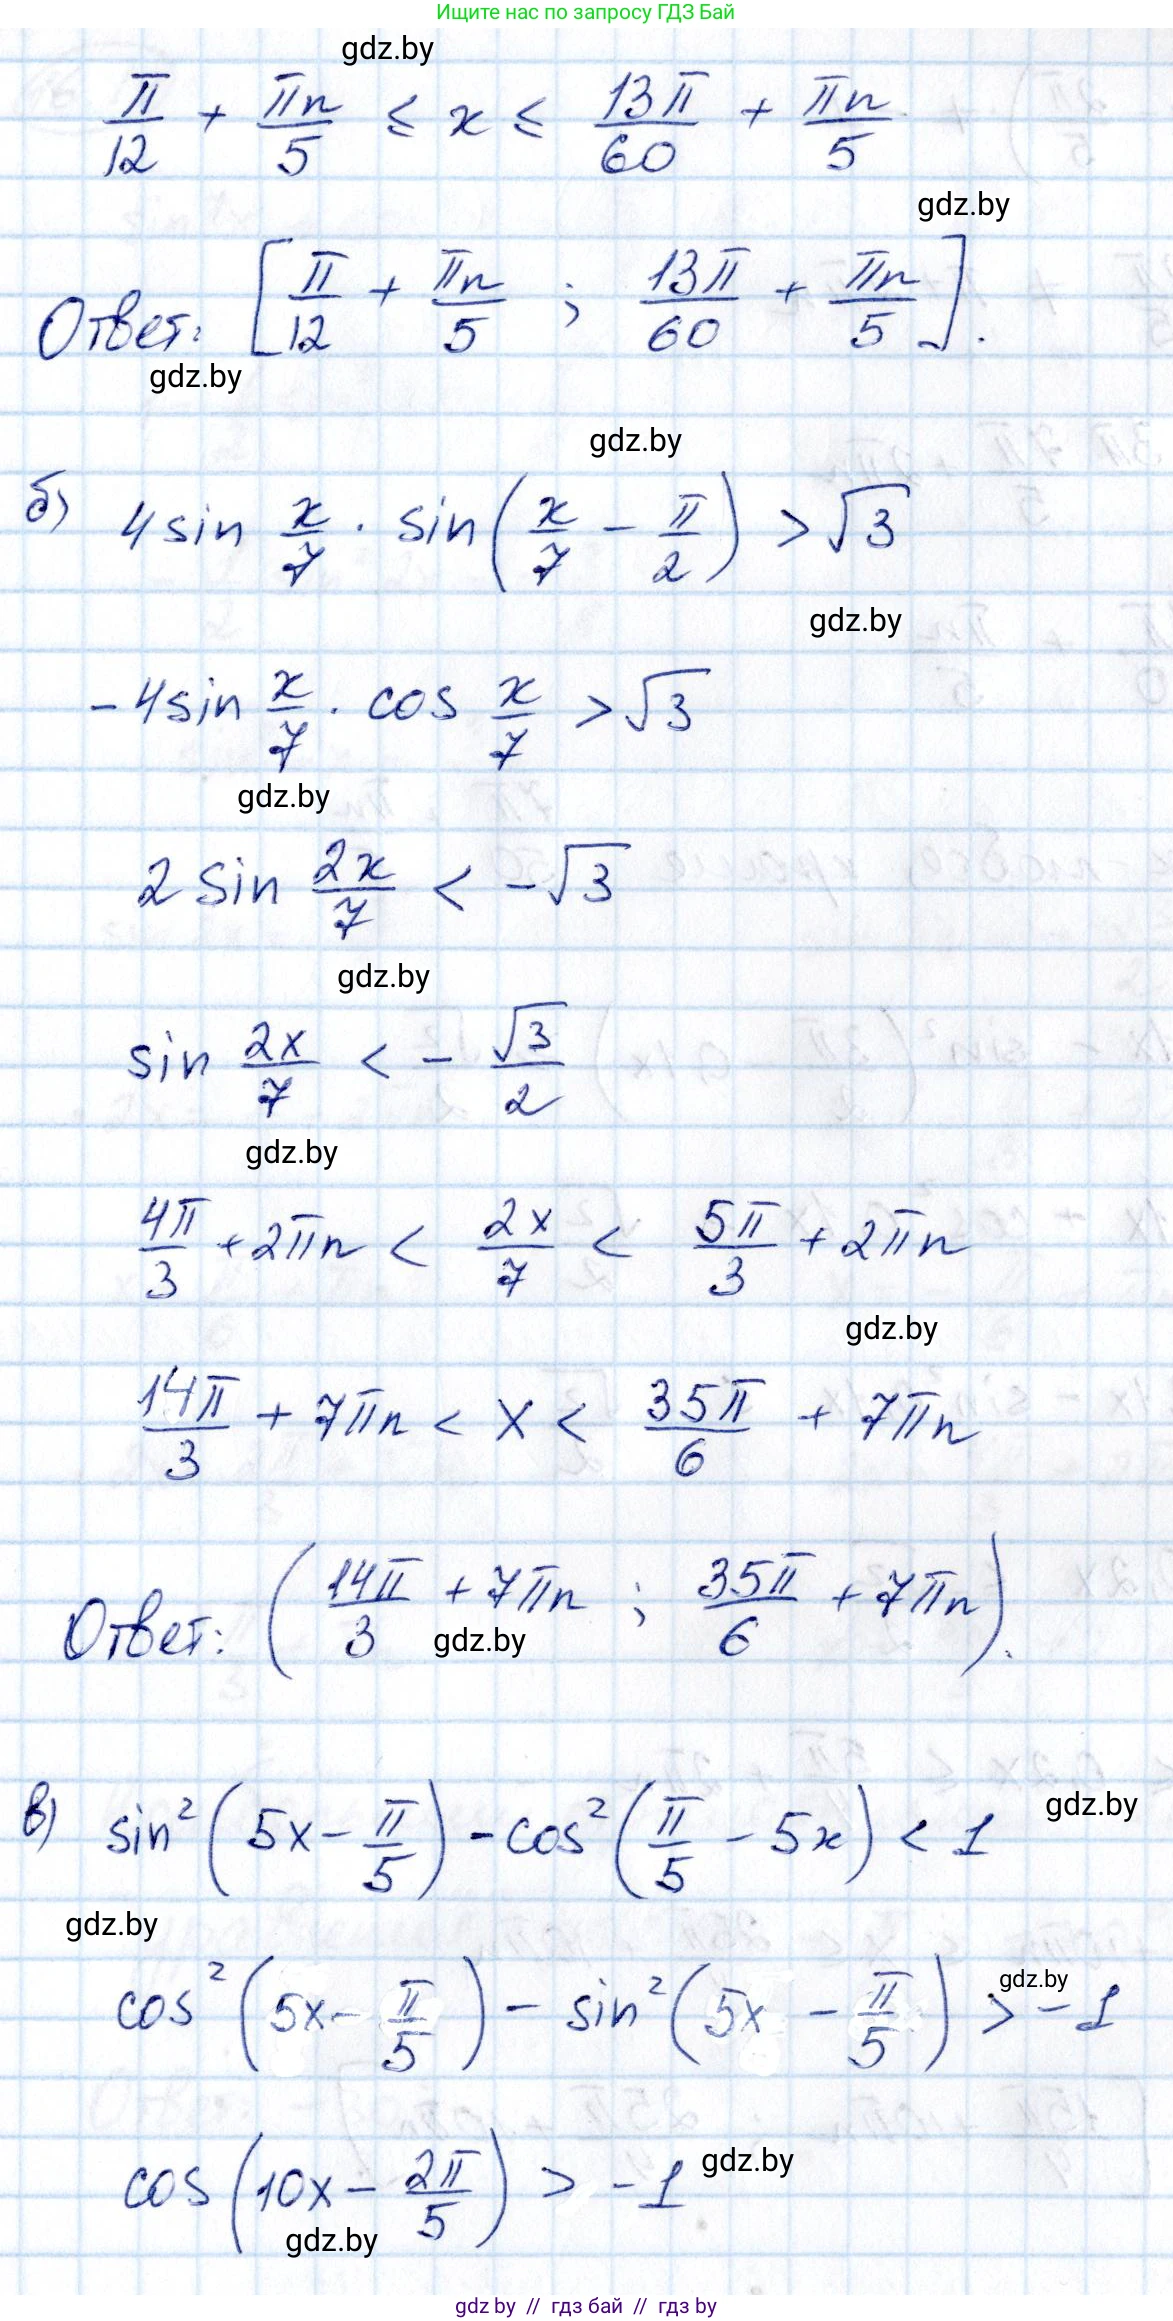 Ищите нас по запросу ГДЗ Бай
gdz.by
π/12 + πn/5 ≤ x ≤ 13π/60 + πn/5
gdz.by
Ответ: [π/12 + πn/5 ; 13π/60 + πn/5].
gdz.by
gdz.by
б) 4 sin x/7 · sin(x/7 − π/2) > √3
gdz.by
−4 sin x/7 · cos x/7 > √3
gdz.by
2 sin 2x/7 < −√3
gdz.by
sin 2x/7 < − √3/2
gdz.by
4π/3 + 2πn < 2x/7 < 5π/3 + 2πn
gdz.by
14π/3 + 7πn < x < 35π/6 + 7πn
Ответ: (14π/3 + 7πn ; 35π/6 + 7πn).
gdz.by
в) sin²(5x − π/5) − cos²(π/5 − 5x) < 1
gdz.by
gdz.by
cos²(5x − π/5) − sin²(5x − π/5) > −1
gdz.by
cos(10x − 2π/5) > −1
gdz.by
gdz.by
gdz by // гдз бай // гдз by